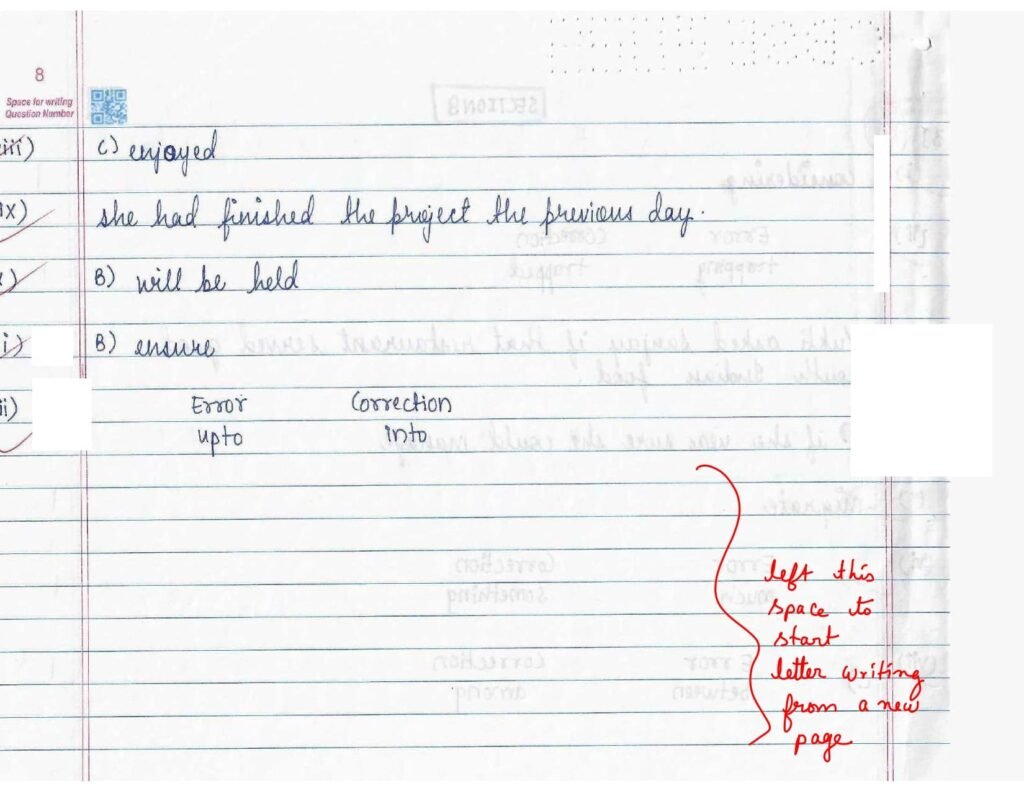 8
Space for writing
Question Number
iii) C) enjoyed
ix) she had finished the project the previous day.
x) B) will be held
i) B) ensure
ii) Error Correction
upto into
left this
space to
start
letter writing
from a new
page